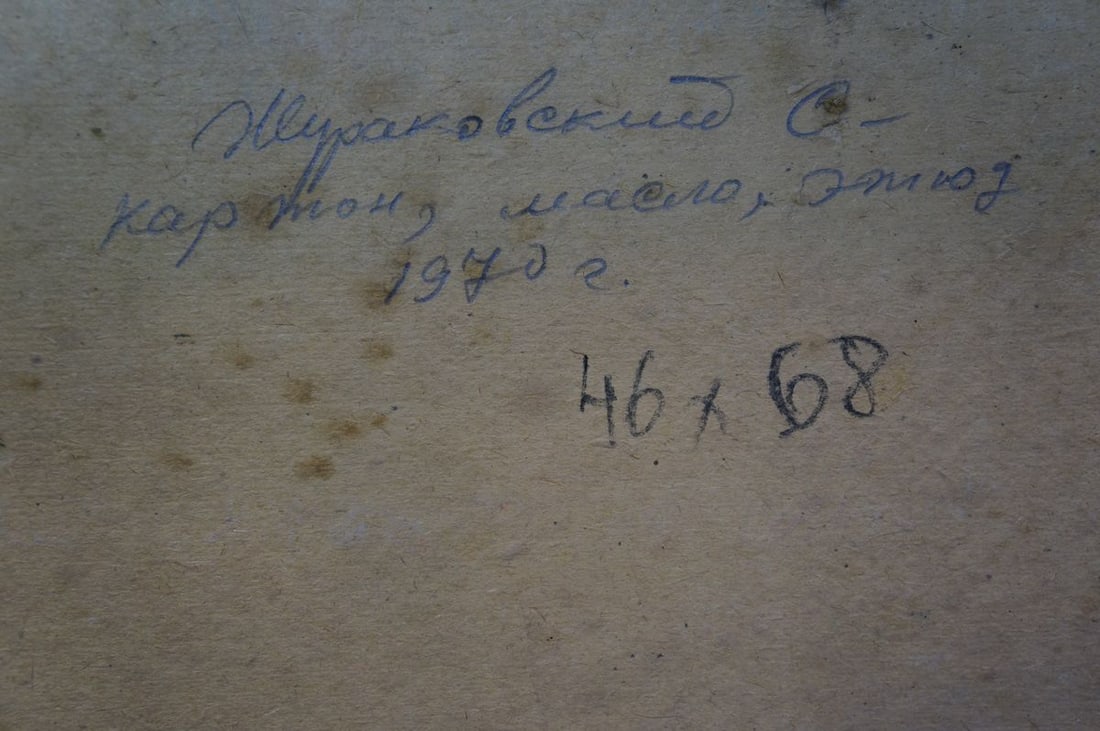 Жураковский С-
картон, масло, этюд
1970 г.
46 x 68